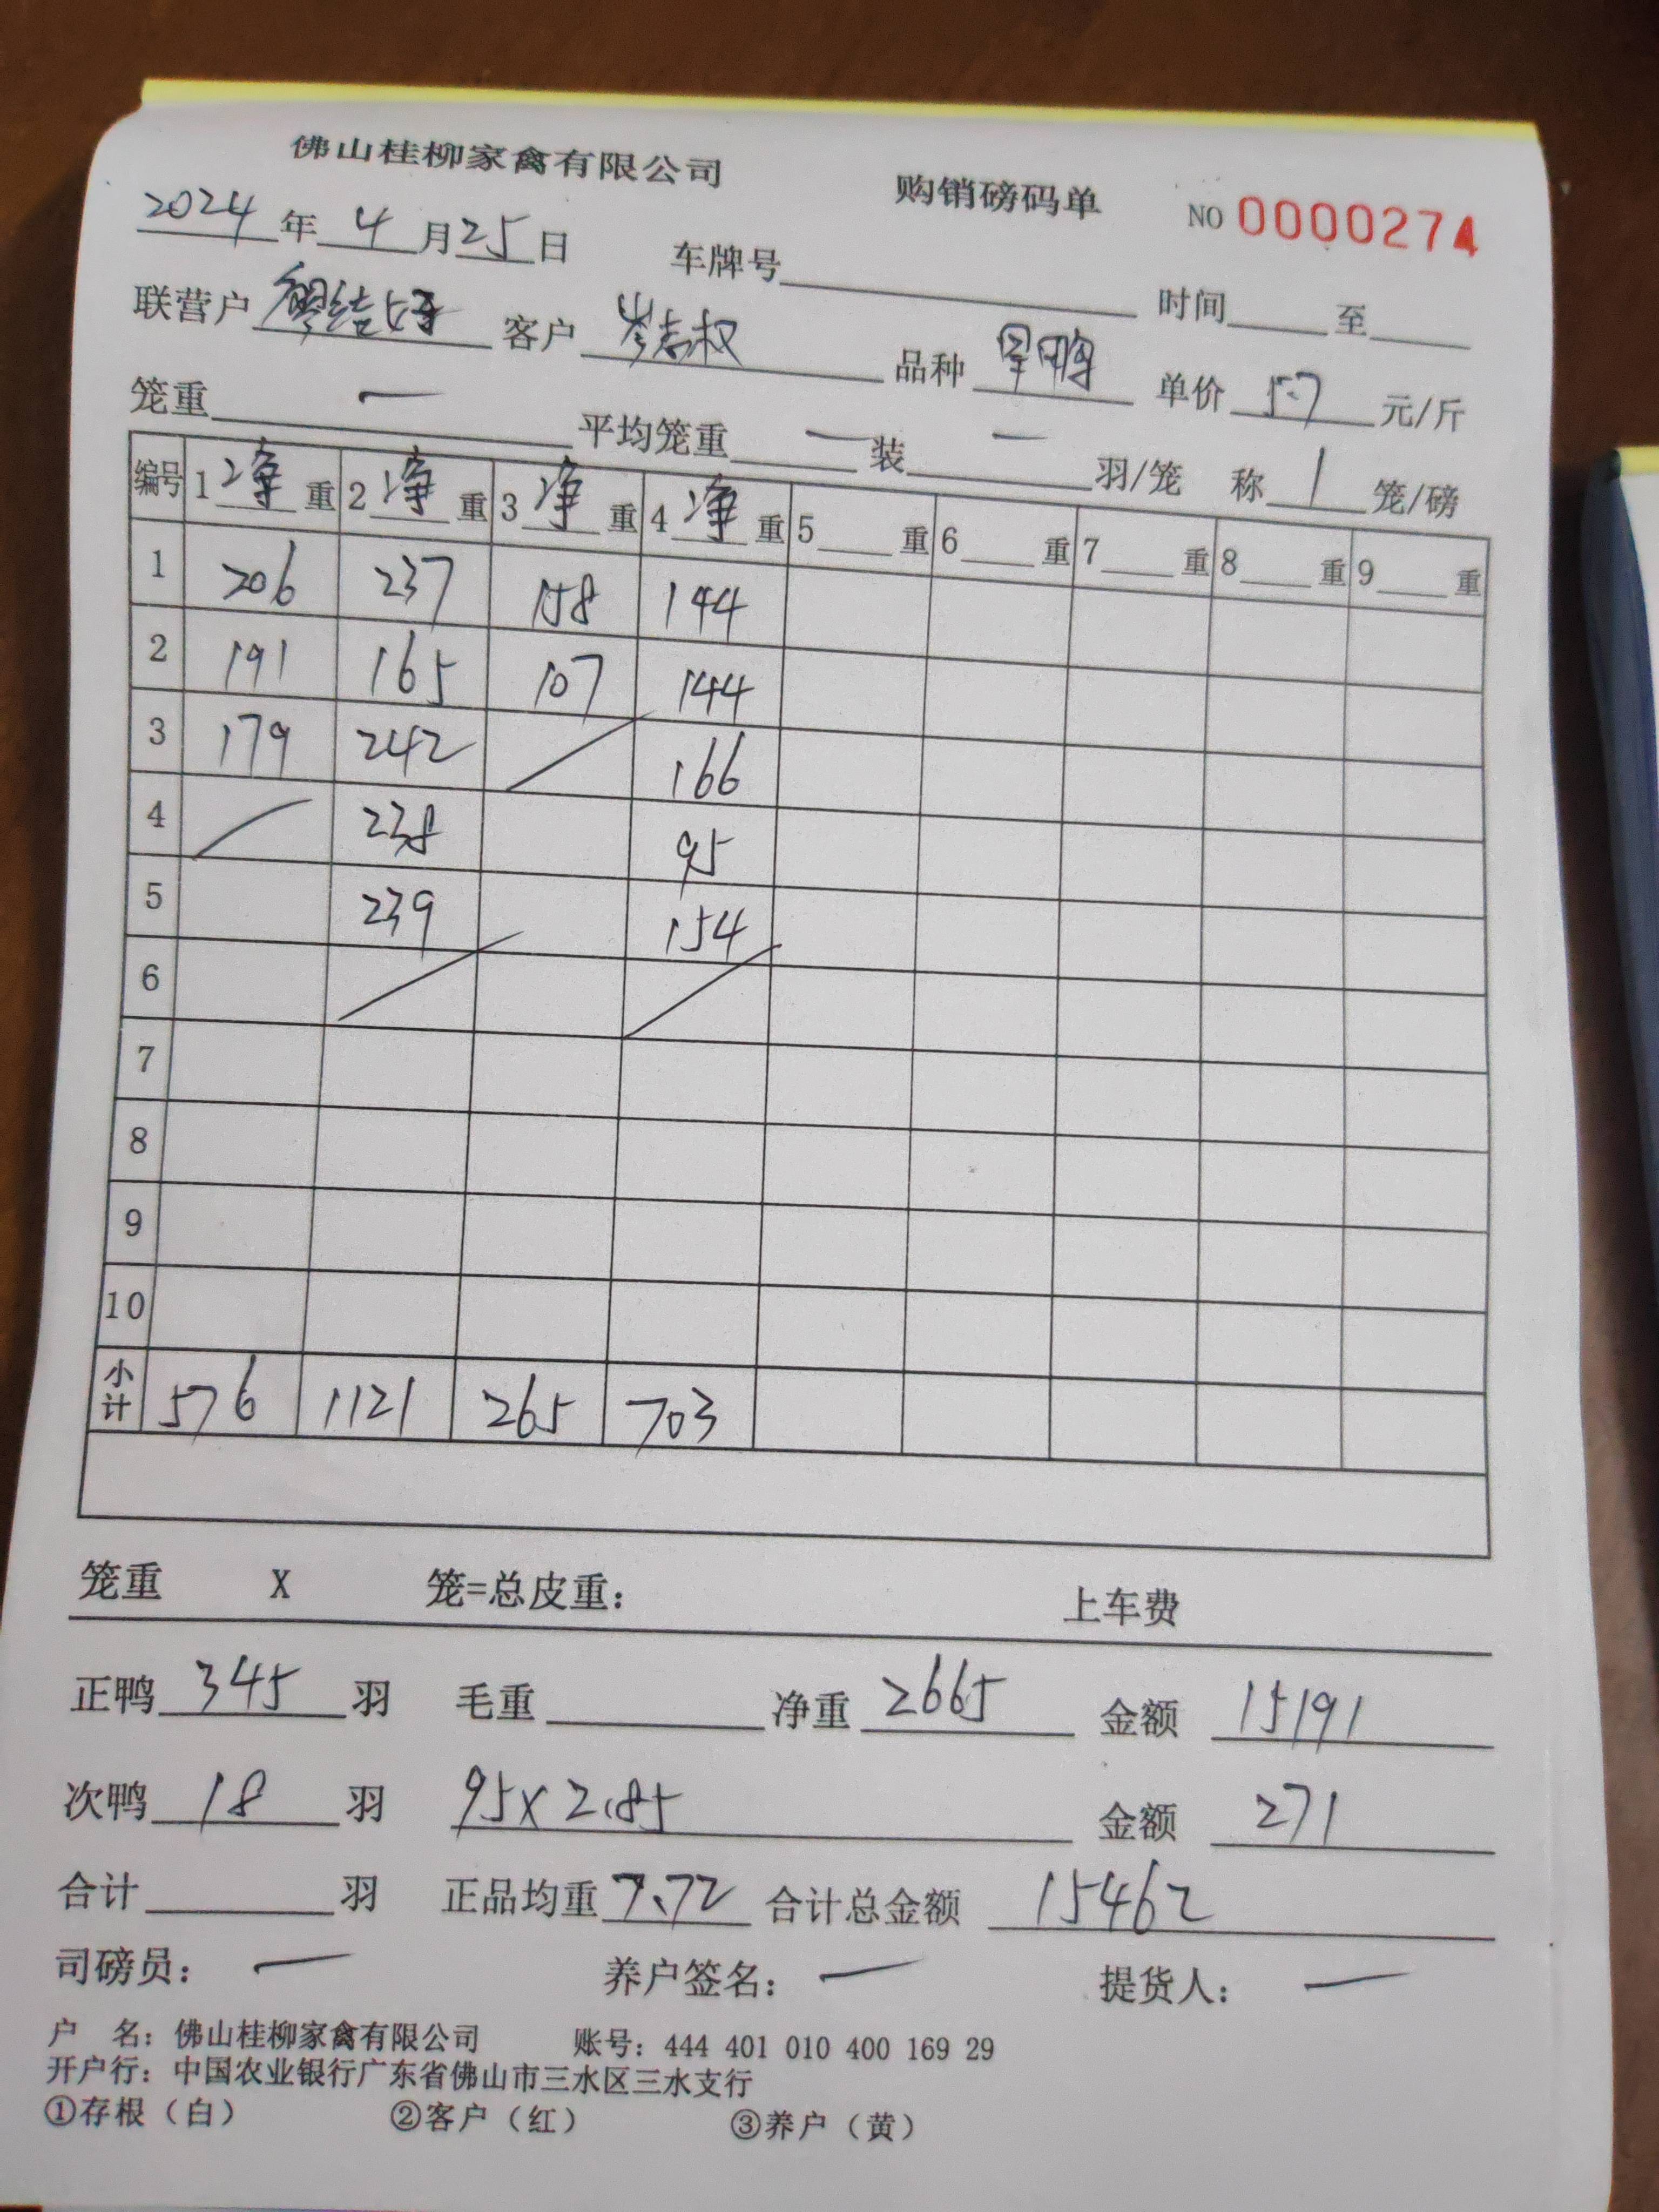 佛山桂柳家禽有限公司 购销磅码单 NO 0000274
2024年4月25日 车牌号 时间 至
联营户 廖结好 客户 岑志权 品种 旱鸭 单价 5.7 元/斤
笼重 一 平均笼重 一 装 一 羽/笼 称 1 笼/磅
编号 1净重 2净重 3净重 4净重 5重 6重 7重 8重 9重
1 206 237 158 144
2 191 165 107 144
3 179 242 166
4 238 95
5 239 154
6
7
8
9
10
小计 576 1121 265 703
笼重 X 笼=总皮重: 上车费
正鸭 345 羽 毛重 净重 2665 金额 15191
次鸭 18 羽 95x2.85 金额 271
合计 羽 正品均重 7.72 合计总金额 15462
司磅员: 一 养户签名: 一 提货人: 一
户 名: 佛山桂柳家禽有限公司 账号: 444 401 010 400 169 29
开户行: 中国农业银行广东省佛山市三水区三水支行
①存根（白） ②客户（红） ③养户（黄）